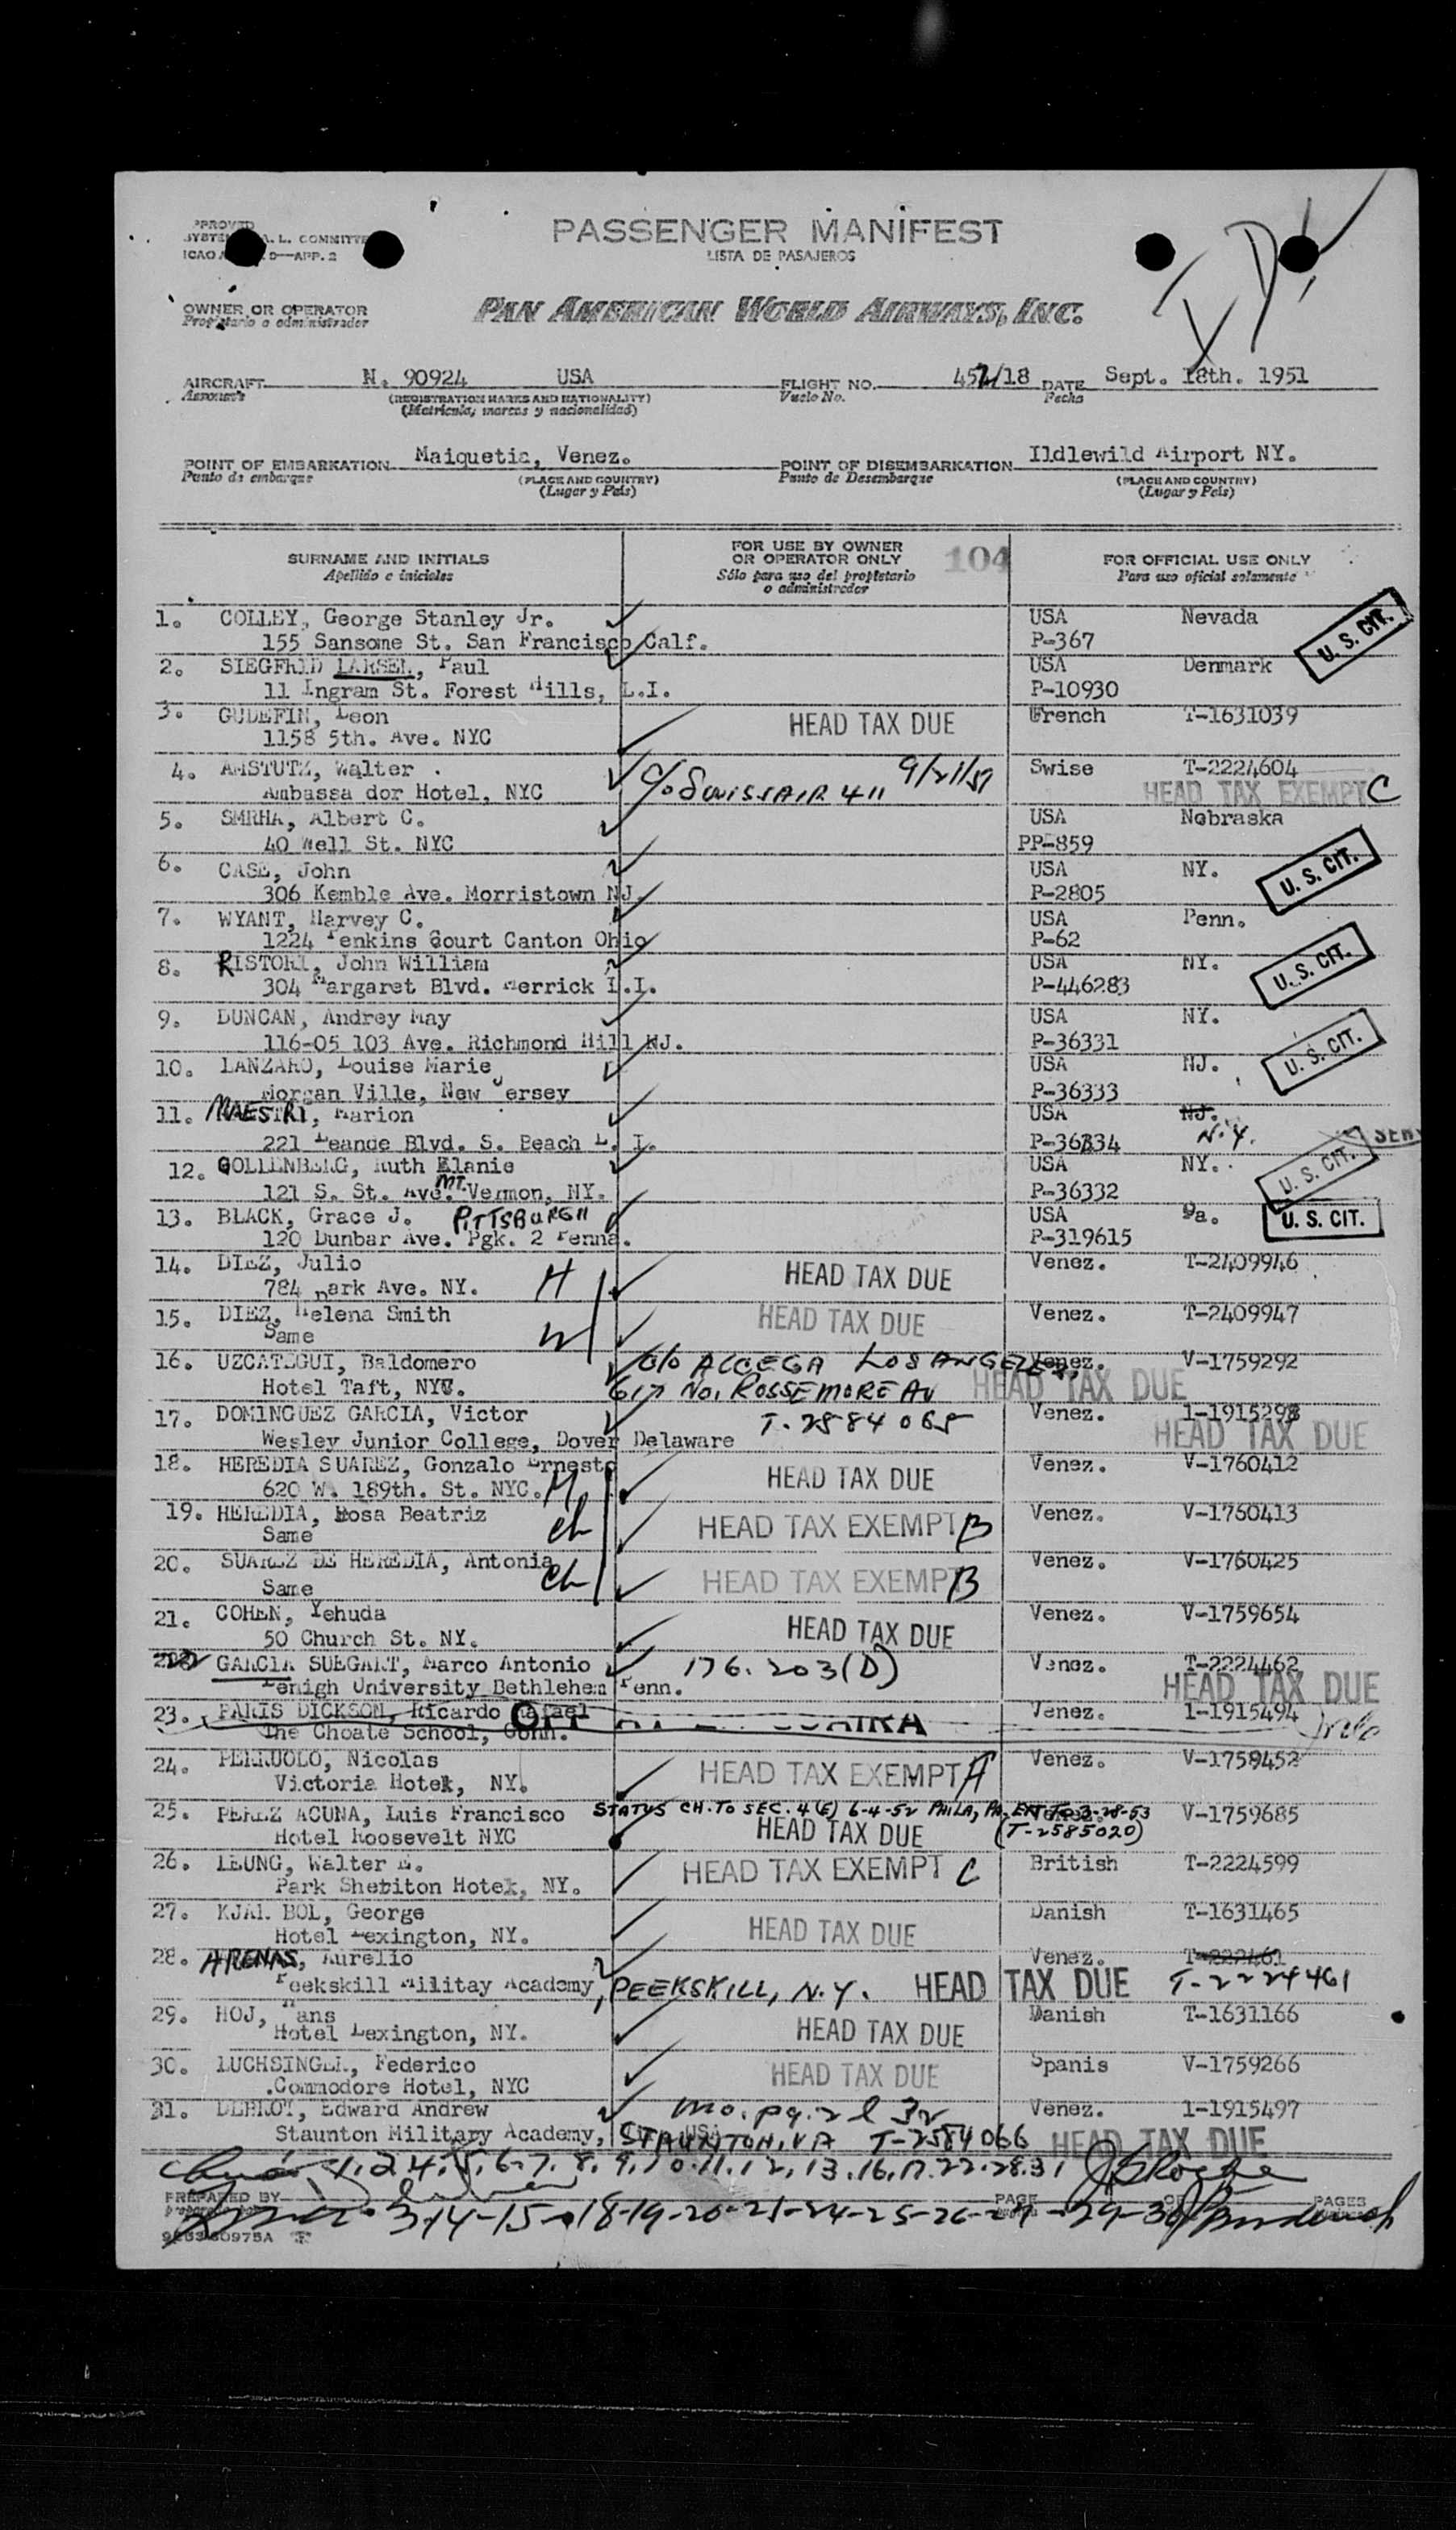 PASSENGER MANIFEST
LISTA DE PASAJEROS
ICAO
D—APP. 2
OWNER OR OPERATOR
Propietario o administrador
PAN AMERICAN WORLD AIRWAYS, INC.
AIRCRAFT N. 90924 USA FLIGHT NO. 452/18 DATE Sept. 18th. 1951
(REGISTRATION MARKS AND NATIONALITY) Vuelo No. Fecha
(Matricula, marcas y nacionalidad)
POINT OF EMBARKATION Maiquetia, Venez. POINT OF DISEMBARKATION Ildlewild Airport NY.
Punto de embarque (PLACE AND COUNTRY) Punto de Desembarque (PLACE AND COUNTRY)
(Lugar y País) (Lugar y País)
SURNAME AND INITIALS FOR USE BY OWNER OR OPERATOR ONLY 104 FOR OFFICIAL USE ONLY
Apellido e iniciales Sólo para uso del propietario o administrador Para uso oficial solamente
1. COLLEY, George Stanley Jr. USA Nevada
155 Sansome St. San Francisco Calf. P-367 U. S. CIT.
2. SIEGFRID LARSEN, Paul USA Denmark
11 Ingram St. Forest Hills, L.I. P-10930
3. GUDEFIN, Leon HEAD TAX DUE French T-1631039
1158 5th. Ave. NYC
4. AMSTUTZ, Walter C/o SWISSAIR 411 9/21/51 Swise T-2224604
Ambassa dor Hotel, NYC HEAD TAX EXEMPT C
5. SMRHA, Albert C. USA Nebraska
40 Wall St. NYC PP-859
6. CASE, John USA NY. U. S. CIT.
306 Kemble Ave. Morristown NJ. P-2805
7. WYANT, Harvey C. USA Penn.
1224 Court Canton Ohio P-62
8. RISTORI, John William USA NY. U. S. CIT.
304 Margaret Blvd. Merrick L.I. P-446283
9. DUNCAN, Andrey May USA NY.
116-05 103 Ave. Richmond Hill NJ. P-36331 U. S. CIT.
10. LANZARO, Louise Marie USA NJ.
Morgan Ville, New Jersey P-36333
11. MAESTRI, Marion USA NJ. N.Y.
221 Blvd. S. Beach L. I.
12. GOLLENBERG, Ruth Elanie USA NY. U. S. CIT.
121 S. St. Ave. MT. Vermon, NY. P-36332
13. BLACK, Grace J. PITTSBURGH USA Pa. U. S. CIT.
120 Dunbar Ave. Pgk. 2 Penna. P-319615
14. DIEZ, Julio H HEAD TAX DUE Venez. T-2409946
784 Park Ave. NY.
15. DIEZ, Helena Smith W HEAD TAX DUE Venez. T-2409947
Same
16. UZCATEGUI, Baldomero c/o LOS ANGELES, Venez. V-1759292
Hotel Taft, NYC. 617 No. ROSSEMORE AV HEAD TAX DUE
17. DOMINGUEZ GARCIA, Victor T-2584065 Venez. HEAD TAX DUE
Wesley Junior College, Dover Delaware
18. HEREDIA SUAREZ, Gonzalo Ernesto HEAD TAX DUE Venez. V-1760412
620 W. 189th. St. NYC.
19. HEREDIA, Rosa Beatriz ch HEAD TAX EXEMPT B Venez. V-1760413
Same
20. SUAREZ DE HEREDIA, Antonia ch HEAD TAX EXEMPT B Venez. V-1760425
Same
21. COHEN, Yehuda HEAD TAX DUE Venez. V-1759654
50 Church St. NY.
22 GARCIA SUEGART, Marco Antonio 176.203(D) Venez. T-2224462
Lehigh University Bethlehem Penn. HEAD TAX DUE
23. PARIS DICKSON, Ricardo Rafael Venez. 1-1915494
The Choate School, Conn.
24. PERRUOLO, Nicolas HEAD TAX EXEMPT A Venez. V-1759452
Victoria Hotel, NY.
25. PEREZ ACUNA, Luis Francisco STATUS CH. TO SEC. 4(E) 6-4-52 PHILA, PA. EXT. TO 3-28-53 V-1759685
Hotel Roosevelt NYC HEAD TAX DUE (T-2585020)
26. LEUNG, Walter E. HEAD TAX EXEMPT C British T-2224599
Park Shetiton Hotel, NY.
27. KJAR BOL, George HEAD TAX DUE Danish T-1631465
Hotel Lexington, NY.
28. ARENAS, Aurelio Venez. T-222461
Peekskill Militay Academy, PEEKSKILL, N.Y. HEAD TAX DUE T-2224461
29. HOJ, Hans HEAD TAX DUE Danish T-1631166
Hotel Lexington, NY.
30. LUCHSINGER, Federico HEAD TAX DUE Spanis V-1759266
Commodore Hotel, NYC
31. DEBROT, Edward Andrew Venez. 1-1915497
Staunton Military Academy, STAUNTON, VA T-2584066 HEAD TAX DUE
1.2.4.5.6.7.8.9.10.11.12.13.16.17.22.28.31
PREPARED BY PAGE OF PAGES
3-14-15-18-19-20-21-24-25-26-27-29-30